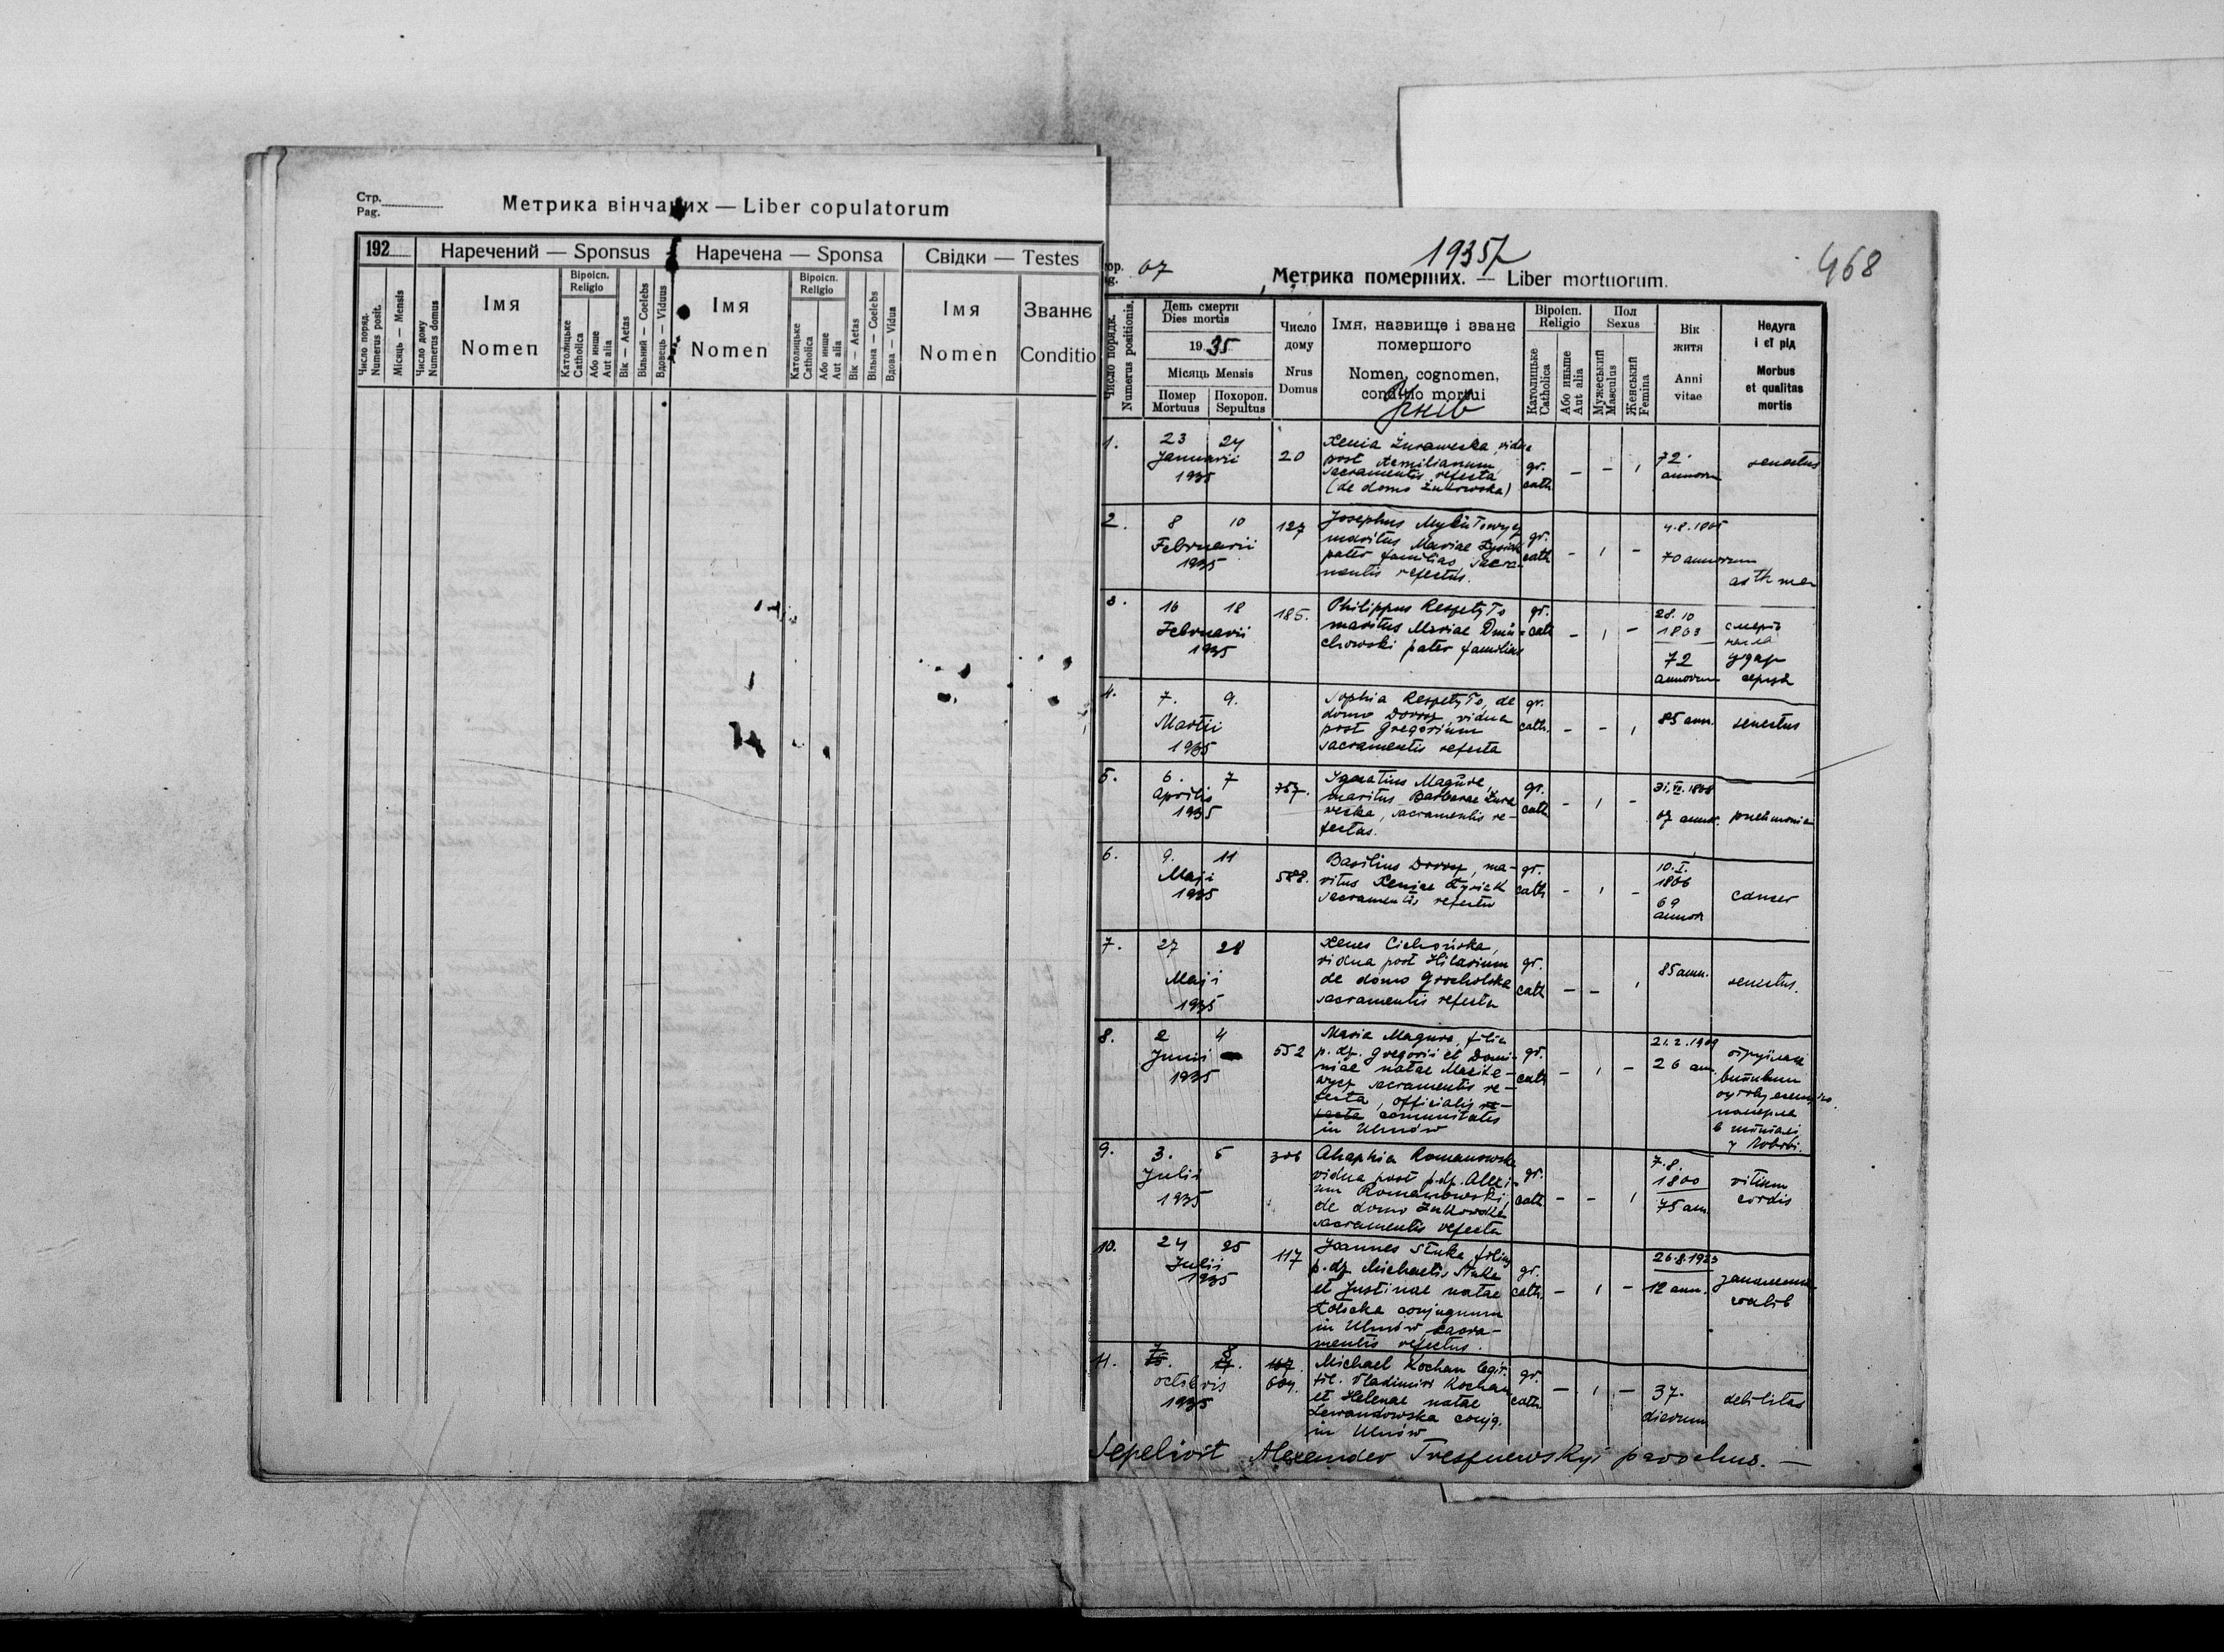 Стр.
Pag.
Метрика вінчаних — Liber copulatorum
192
Наречений — Sponsus
Наречена — Sponsa
Свідки — Testes
Число поряд.
Numerus posit.
Місяць — Mensis
Число дому
Numerus domus
Імя
Nomen
Віроісп.
Religio
Католицьке
Catholica
Або инше
Aut alia
Вік — Aetas
Вільний — Coelebs
Вдовець — Viduus
Імя
Nomen
Віроісп.
Religio
Католицьке
Catholica
Або инше
Aut alia
Вік — Aetas
Вільна — Coelebs
Вдова — Vidua
Імя
Nomen
Званнє
Conditio
1935
468
67
Метрика померших. — Liber mortuorum.
Число порядк.
Numerus positionis.
День смерти
Dies mortis
1935
Місяць Mensis
Помер
Mortuus
Похорон.
Sepultus
Число
дому
Nrus
Domus
Імя, назвище і званє
помершого
Nomen, cognomen,
conditio mortui
Угнів
Віроісп.
Religio
Католицьке
Catholica
Або иньше
Aut alia
Пол
Sexus
Мужеський
Masculus
Женський
Femina
Вік
житя
Anni
vitae
Недуга
і єї рід
Morbus
et qualitas
mortis
1.
23 24
Januarii
1935
20
Xenia Żurawecka, vidua
post Aemilianum,
sacramentis refecta
(de domo Żukowska)
gr.
cath
72
annorum
senectus
2.
8 10
Februarii
1935
127
Josephus
maritus Mariae Łysiak
pater familias, sacra-
mentis refectus.
gr.
cath
70 annorum
asthma
3.
16 18
Februarii
1935
185.
Philippus Respetyło
maritus Mariae Dmi-
chowski pater familias
gr.
cath
28. 10
1863
72
annorum
смерть
нагла
удар
серця
4.
7. 9.
Martii
1935
Sophia Respetyło, de
domo Dorosz, vidua
post Gregorium
sacramentis refecta
gr.
cath.
85 ann.
senectus
5.
6. 7
Aprilis
1935
757.
Ignatius Magura,
maritus Barbarae Żura-
wecka, sacramentis re-
fectus.
gr.
cath
67 annor.
pneumonia
6.
9. 11
Maji
1935
588.
Basilius Dorosz, ma-
ritus Xeniae Łysiak
sacramentis refectus
gr.
cath
10. I.
1866
69
annor
cancer
7.
27 28
Maji
1935
Xenia Cichońska,
vidua post Hilarium
de domo Grocholska
sacramentis refecta
gr.
cath
85 ann.
senectus.
8.
2 4
Junii
1935
552
Maria Magura, filia
p. dz. Gregorii et Domi-
niae natae
sacramentis re-
fecta, officialis re-
fecta comunitatis
in Uhnów
gr.
cath
21. 2. 1909
26 ann.
померла
в шпиталі
у Львові.
9.
3. 5
Julii
1935
306
Ahaphia Romanowska
vidua post p.dz. Alexi-
um Romanowski,
de domo Żukowski
sacramentis refecta
gr.
cath
7. 8.
1860
75 ann
vitium
cordis
10.
24 25
Julii
1935
117
Joannes Stuka, filius
p. dz. Michaelis Stuka
et Justinae natae
conjugum
in Uhnów, sacra-
mentis refectus.
gr.
cath.
26.8.1923
12 ann.
запалення
11.
7 8
octobris
1935
117
604.
Michael Kochan legit.
fil. Vladimiri Kochan
et Helenae natae
Lewandowska conjg.
in Uhnów
gr.
cath.
37.
dierum
debilitas
Sepelivit Alexander Treszniewskyj parochus. —